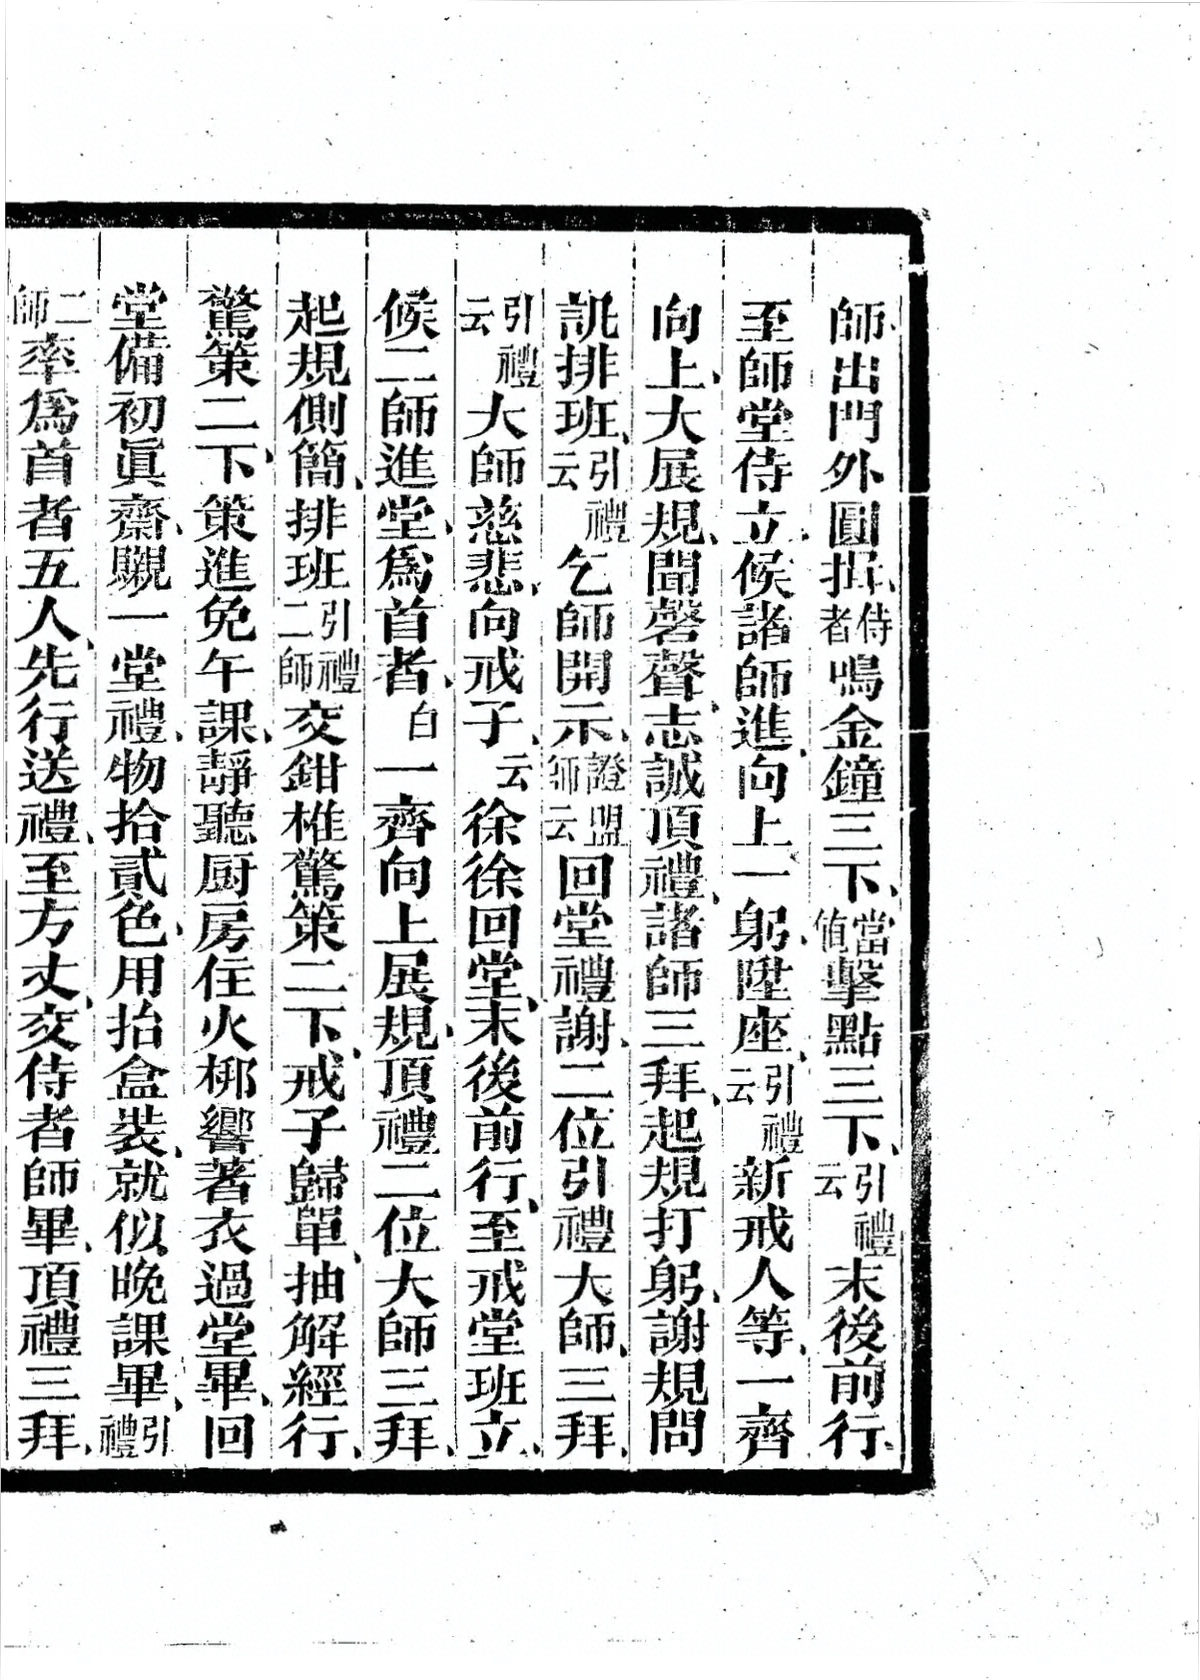 師出門外圓揖、侍者鳴金鐘三下、當值擊點三下、引禮云末後前行、
至師堂侍立、候諸師進、向上一躬、陞座、引禮云新戒人等、一齊
向上、大展規、聞磬聲、志誠頂禮、諸師三拜、起規打躬、謝規問
訊排班、引禮云乞師開示、證盟師云回堂禮謝、二位引禮大師、三拜、
引禮云大師慈悲、向戒子、云徐徐回堂、末後前行、至戒堂班立、
候二師進堂、爲首者、白一齊向上展規、頂禮二位大師三拜、
起規側簡、排班引禮二師交鉗椎驚策二下、戒子歸單、抽解經行、
驚策二下、策進免午課、靜聽厨房住火梆響著衣過堂畢、回
堂備初眞齋、䞋一堂禮、物拾貳色、用抬盒裝、就似晚課畢、引禮
二師率爲首者五人、先行送禮、至方丈、交侍者師畢、頂禮三拜、